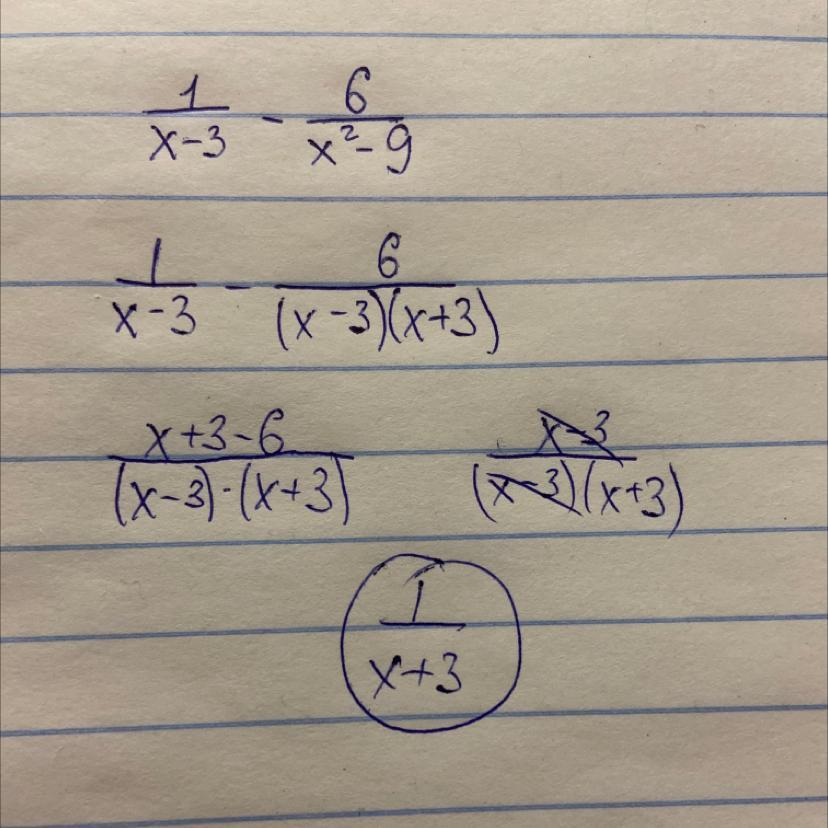 1/(x-3) - 6/(x²-9)
1/(x-3) - 6/((x-3)(x+3))
(x+3-6)/((x-3)·(x+3)) (x-3)/((x-3)(x+3))
1/(x+3)